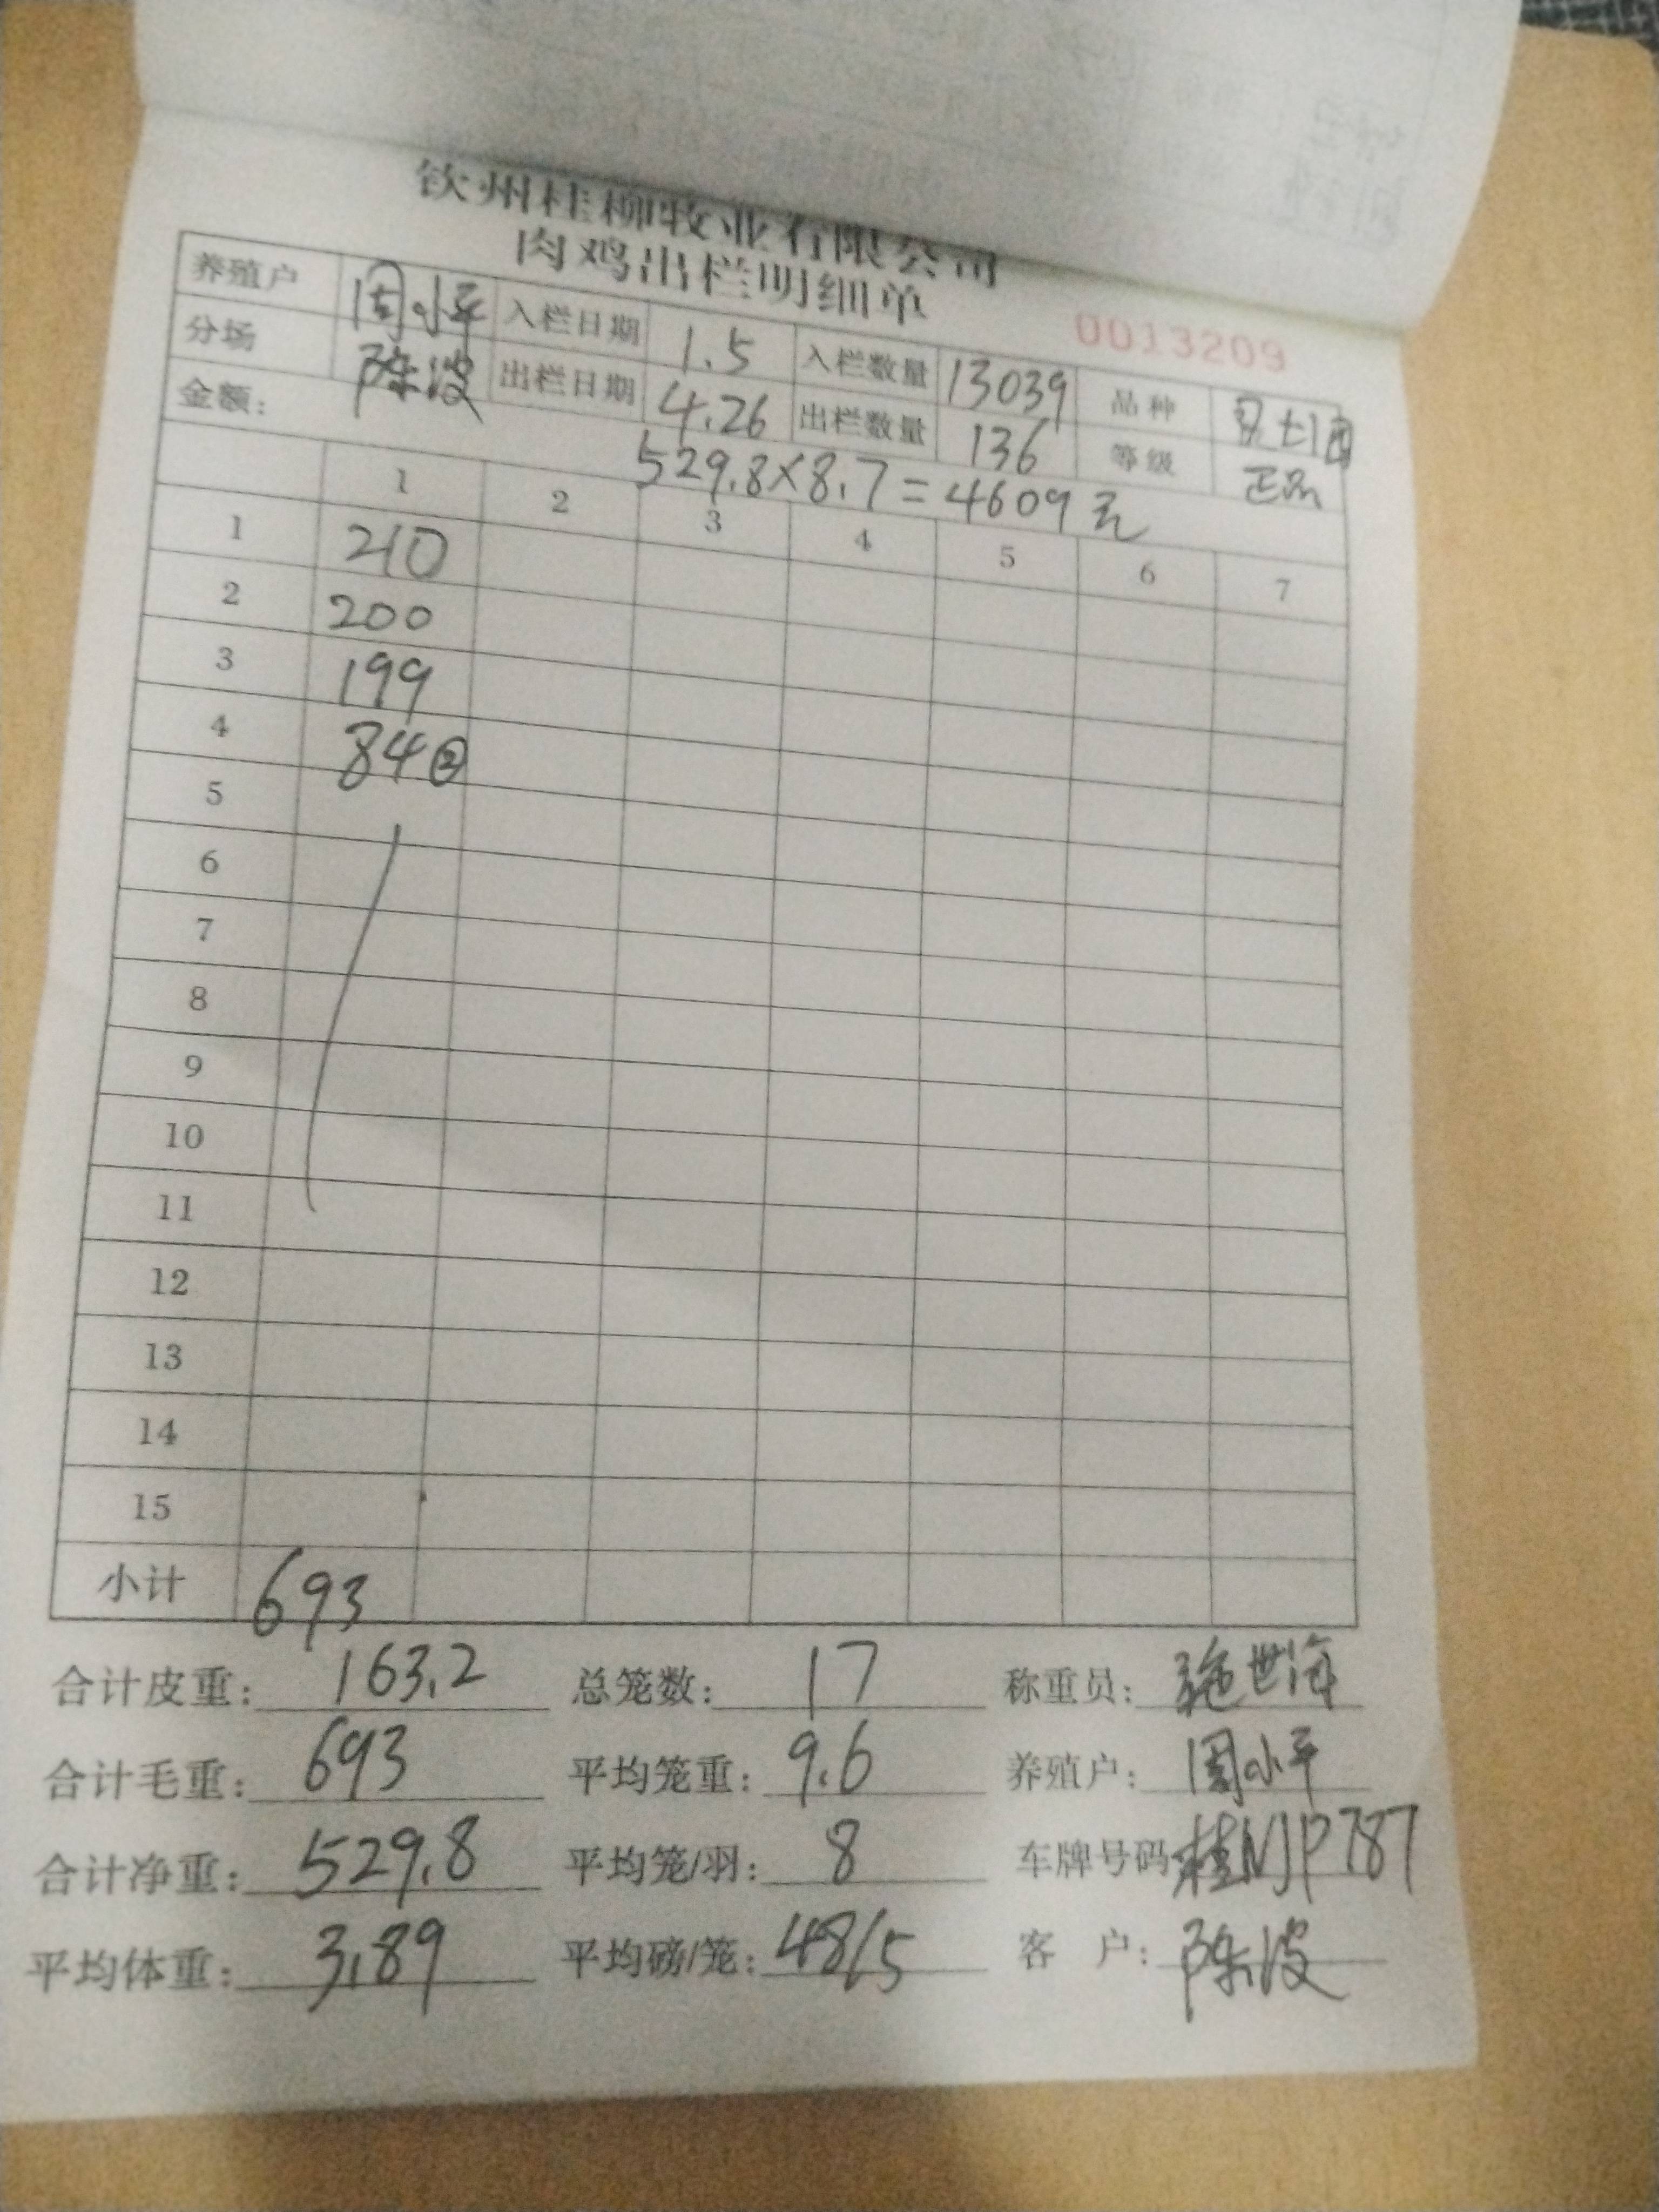 钦州桂柳牧业有限公司
肉鸡出栏明细单
0013209
养殖户 周小平 入栏日期 1.5 入栏数量 13039 品种
分场 陈波 出栏日期 4.26 出栏数量 136 等级 正品
金额: 529.8×8.7=4609元
1 2 3 4 5 6 7
1 210
2 200
3 199
4 84②
5
6
7
8
9
10
11
12
13
14
15
小计 693
合计皮重: 163.2 总笼数: 17 称重员: 施世海
合计毛重: 693 平均笼重: 9.6 养殖户: 周小平
合计净重: 529.8 平均笼/羽: 8 车牌号码 桂NJP787
平均体重: 3.89 平均磅/笼: 48/5 客 户: 陈波